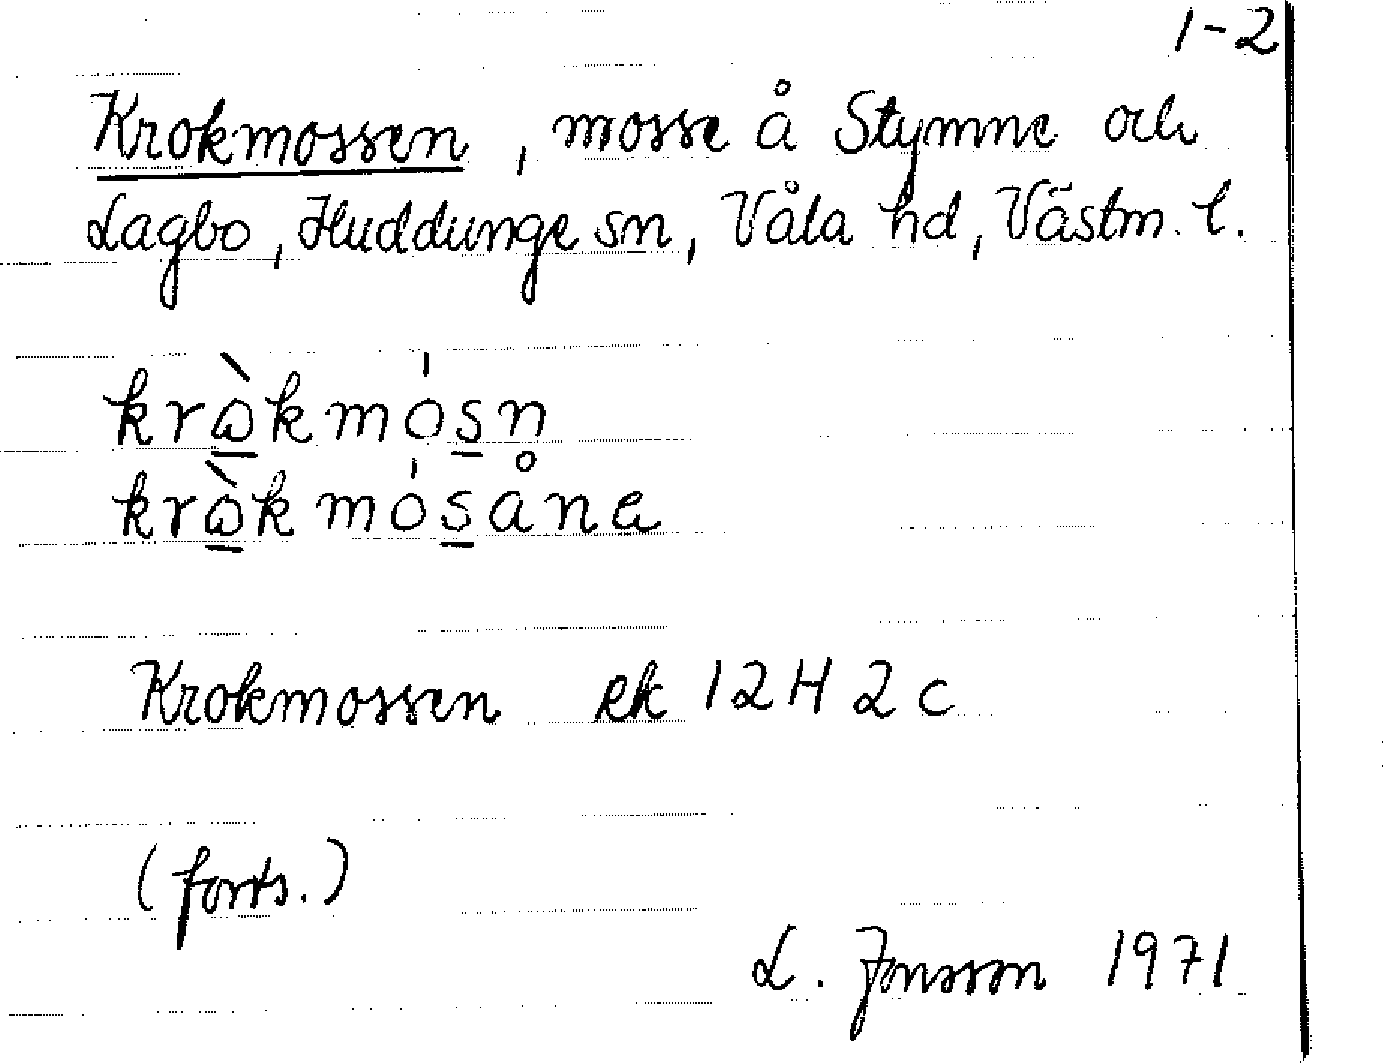 1-2
Krokmossen, mosse å Stymne och
Lagbo, Huddunge sn, Våla hd, Västm. l.
krò̱kmós̱n
krò̱kmós̱åna
Krokmossen ek 12H 2c
(forts.)
L. Jonsson 1971